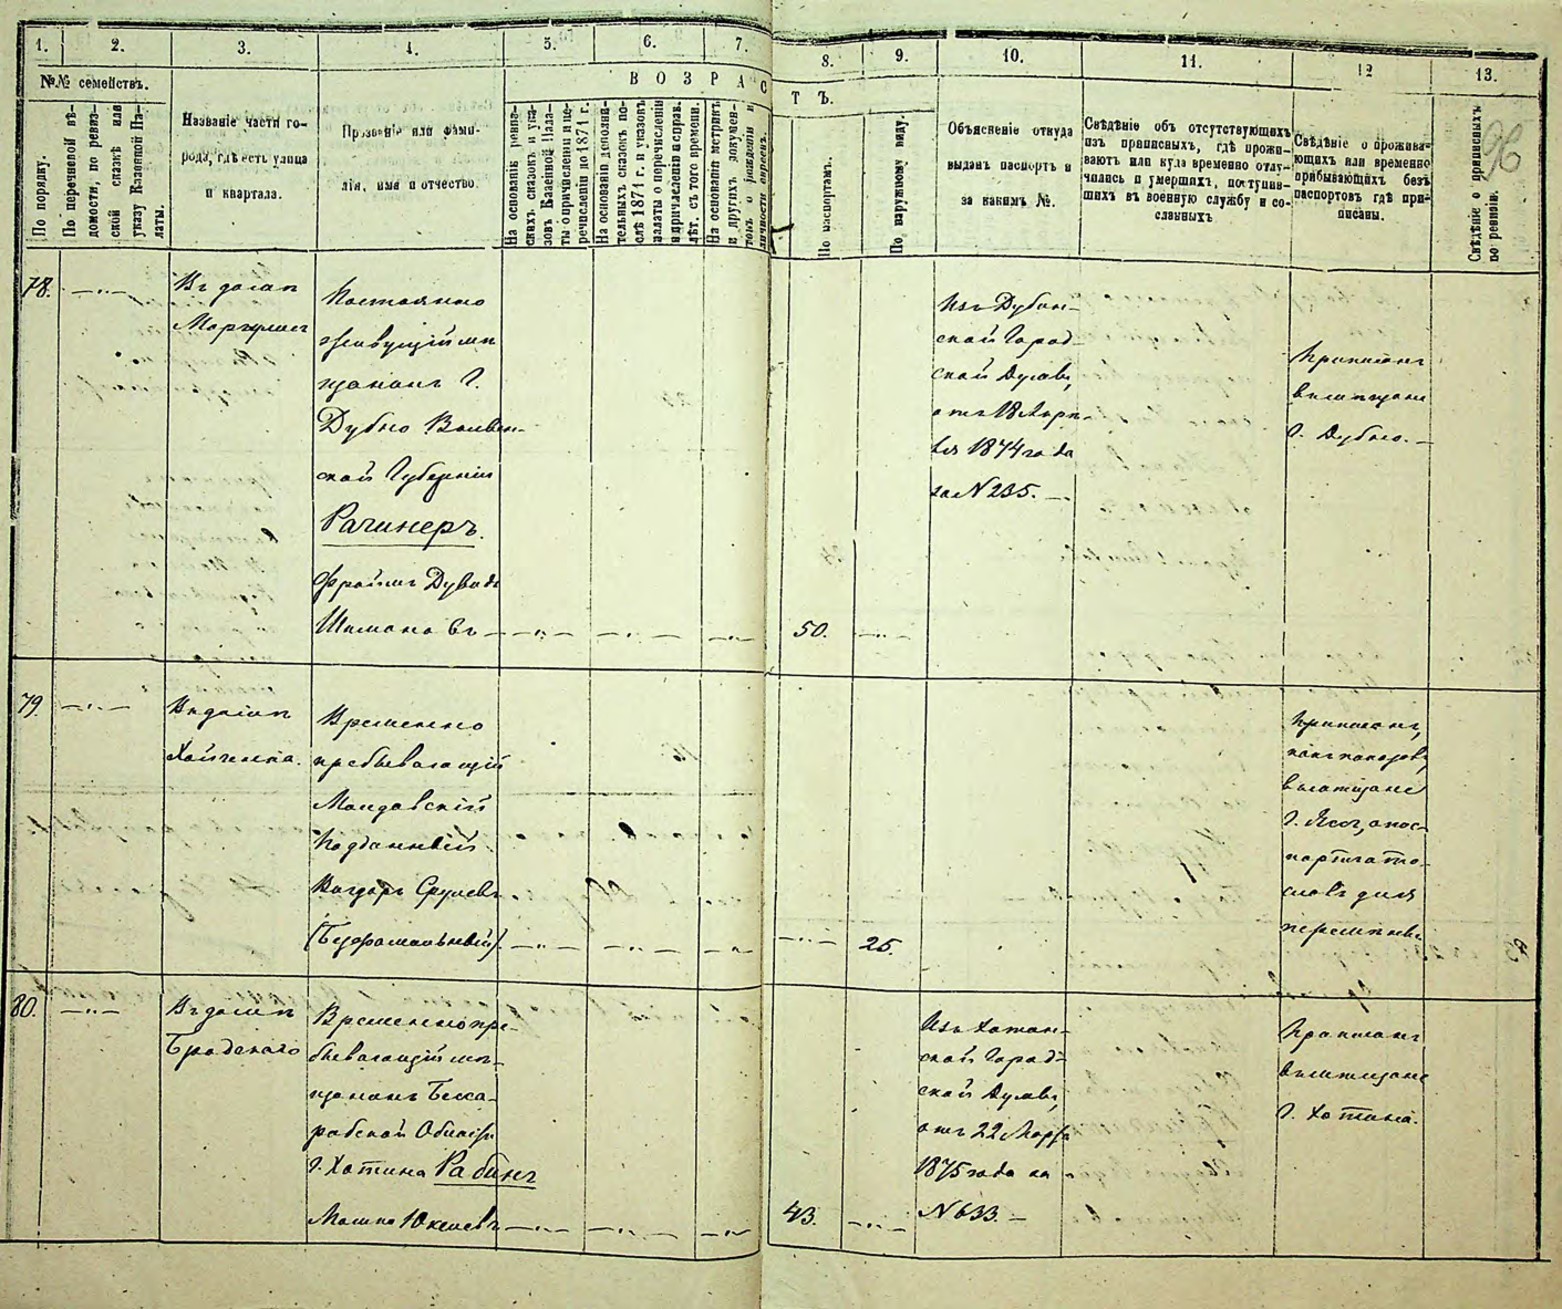 1.
2.
3.
4.
5.
6.
7.
8.
9.
10.
11.
12
13.
№№ семействъ.
По порядку.
По перечневой вѣ-
домости, по ревиз-
ской сказкѣ или
указу Казенной Па-
латы.
Названіе части го-
рода, гдѣ есть улица
и квартала.
Прозваніе или фами-
лія, имя и отчество.
ВОЗРАС
ТЪ.
На основаніи ревиз-
скихъ сказокъ и ука-
зовъ Казенной Пала-
ты о причисленіи и пе-
речисленіи до 1871 г.
На основаніи дополни-
тельныхъ сказокъ по-
слѣ 1871 г. и указовъ
палаты о перечисленіи
и причисленіи и справ.
лѣт. съ того времени.
На основаніи метрикъ
и другихъ докумен-
товъ о рожденіи и
личности евреевъ.
По паспортамъ.
По наружному виду.
Объясненіе откуда
выданъ паспортъ и
за какимъ №.
Свѣдѣніе объ отсутствующихъ
изъ приписныхъ, гдѣ прожи-
ваютъ или куда временно отлу-
чились и умершихъ, поступив-
шихъ въ военную службу и со-
сланныхъ
Свѣдѣніе о прожива-
ющихъ или временно
прибывающихъ безъ
паспортовъ гдѣ при-
писаны.
Свѣдѣніе о приписныхъ
по ревизіи.
96
78.
Въ домѣ
Маргулиса
Постоянно
живущій мѣ
щанинъ г.
Дубно Волын-
ской Губерніи
Рачинеръ.
Фроимъ Дувидъ
Шимоновъ
50.
Изъ Дубен-
ской Город-
ской Думы,
отъ 18 Апрѣ-
ля 1874 года
за N 235. —
Приписанъ
въ мѣщане
г. Дубно. —
79.
Въ домѣ
Хайченка.
Временно
пребывающій
Молдавскій
Подданный
(Безфамильный)
25.
Приписанъ,
въ мѣщане
г. Яссъ, а пас-
портъ ото-
сланъ для
перемѣны
80.
Въ домѣ
Бродскаго
Временно пре-
бывающій мѣ-
щанинъ Бесса-
рабской Области
г. Хотина Рабинъ
Мошко Юкелевъ
43.
Изъ Хотин-
ской Город-
ской Думы,
отъ 22 Марта
1875 года за
N 633. —
Приписанъ
въ мѣщане
г. Хотина.